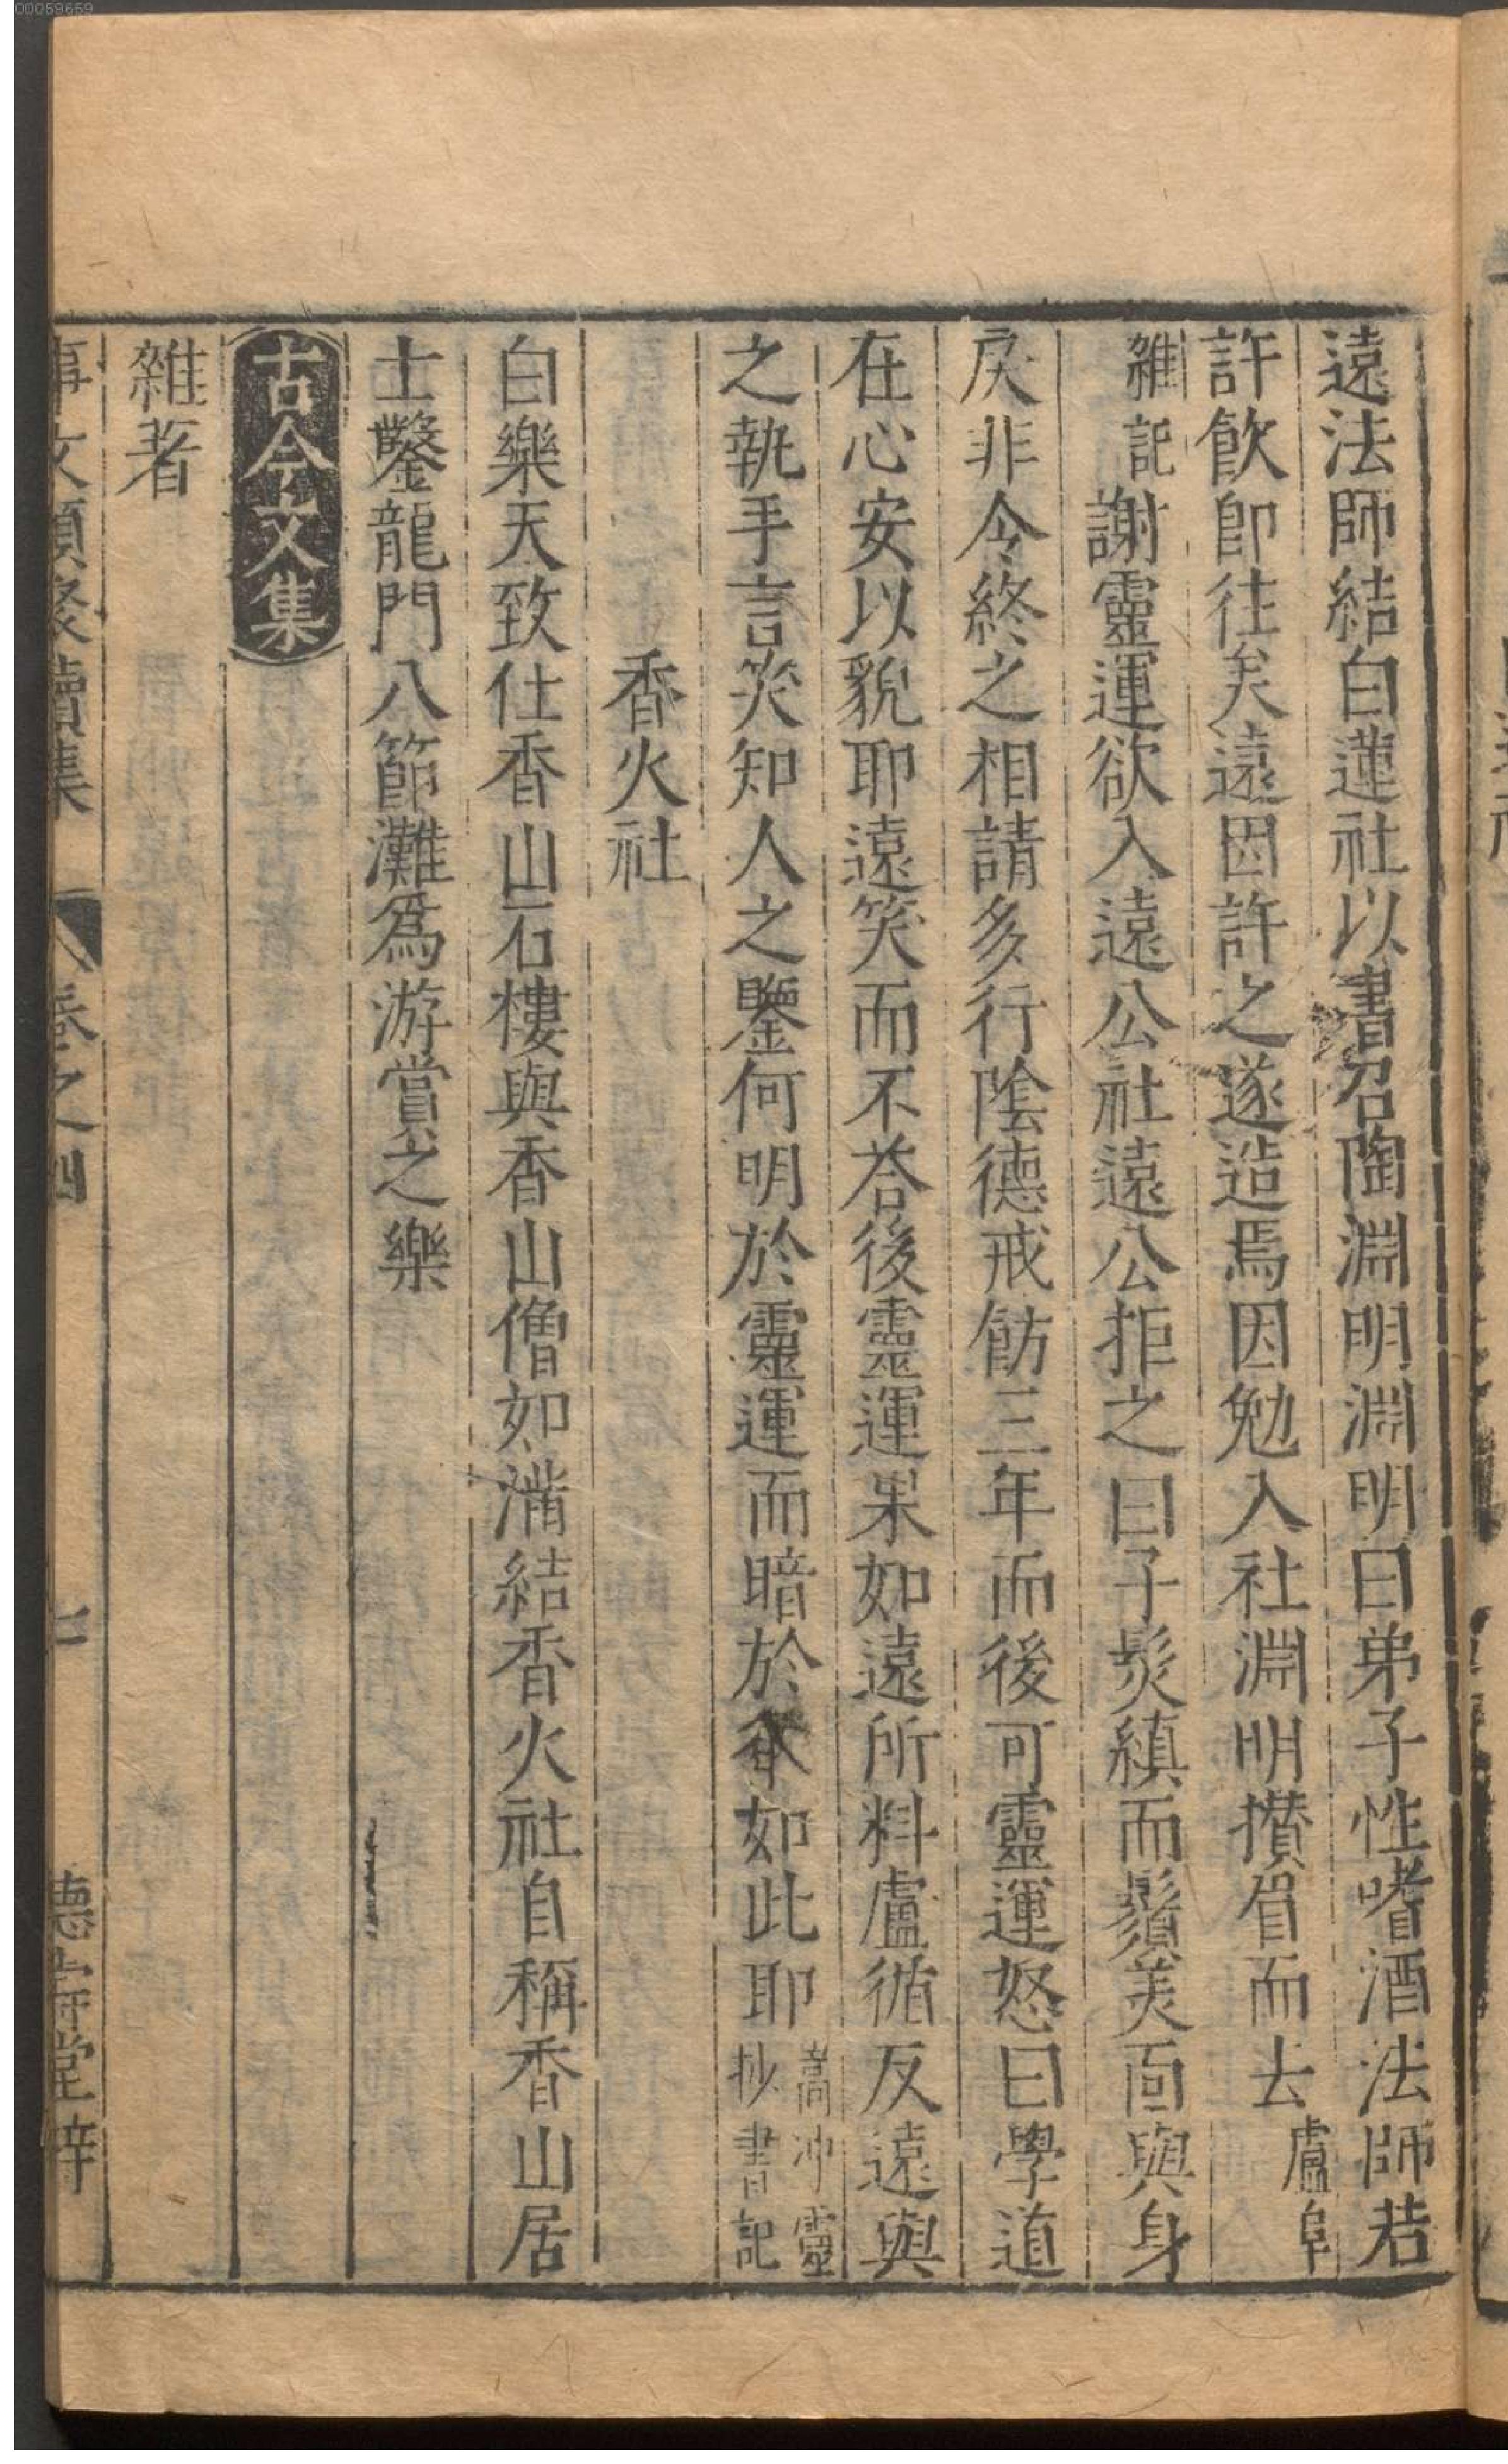 00059659
遠法師結白蓮社以書召陶淵明淵明曰弟子性嗜酒法師若
許飮即往矣遠因許之遂造焉因勉入社淵明攅眉而去廬阜
雜記謝靈運欲入遠公社遠公拒之曰子髮縝而鬚美面與身
戾非令終之相請多行陰德戒飭三年而後可靈運怒曰學道
在心安以貌耶遠笑而不荅後靈運果如遠所料盧循反遠與
之執手言笑知人之鑒何明於靈運而暗於如此耶嵩冲靈抄書記
香火社
白樂天致仕香山石樓與香山僧如滿結香火社自稱香山居
士鑿龍門八節灘爲游賞之樂
古今文集
雜著
事文類聚續集 卷之四 七 德壽堂梓